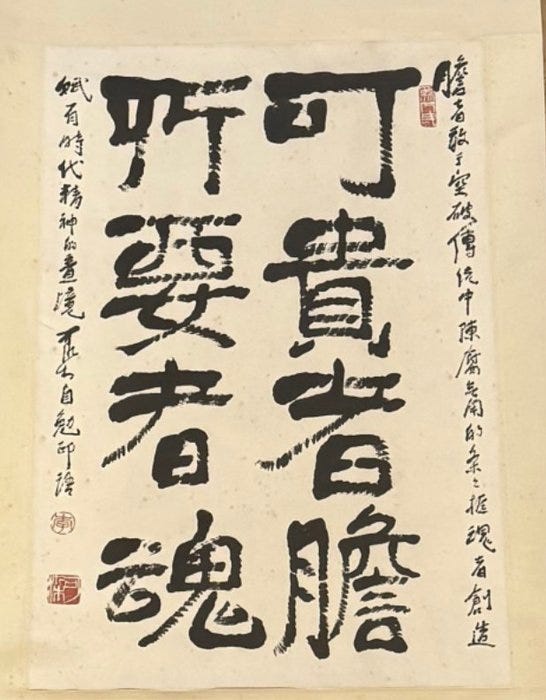 膽者敢于突破傳统中陳腐無用的条々框魂者創造
可貴者膽
所要者魂
賦有時代精神的畫境 可染自勉印語
李
可染